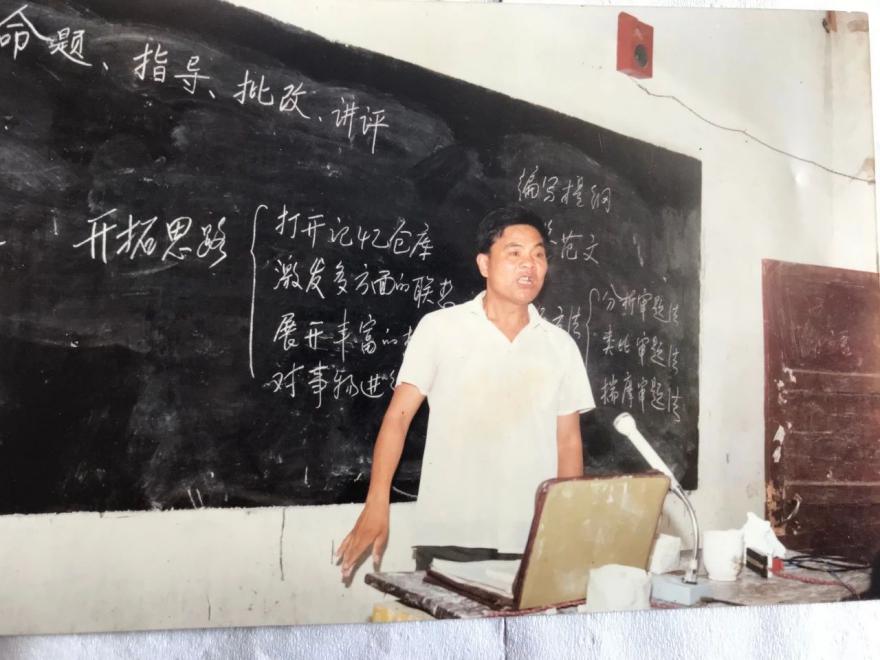 命题、指导、批改、讲评
开拓思路
打开记忆仓库
激发多方面的联想
展开丰富的
对事物进行
编写提纲
范文
分析审题法
类比审题法
揣摩审题法